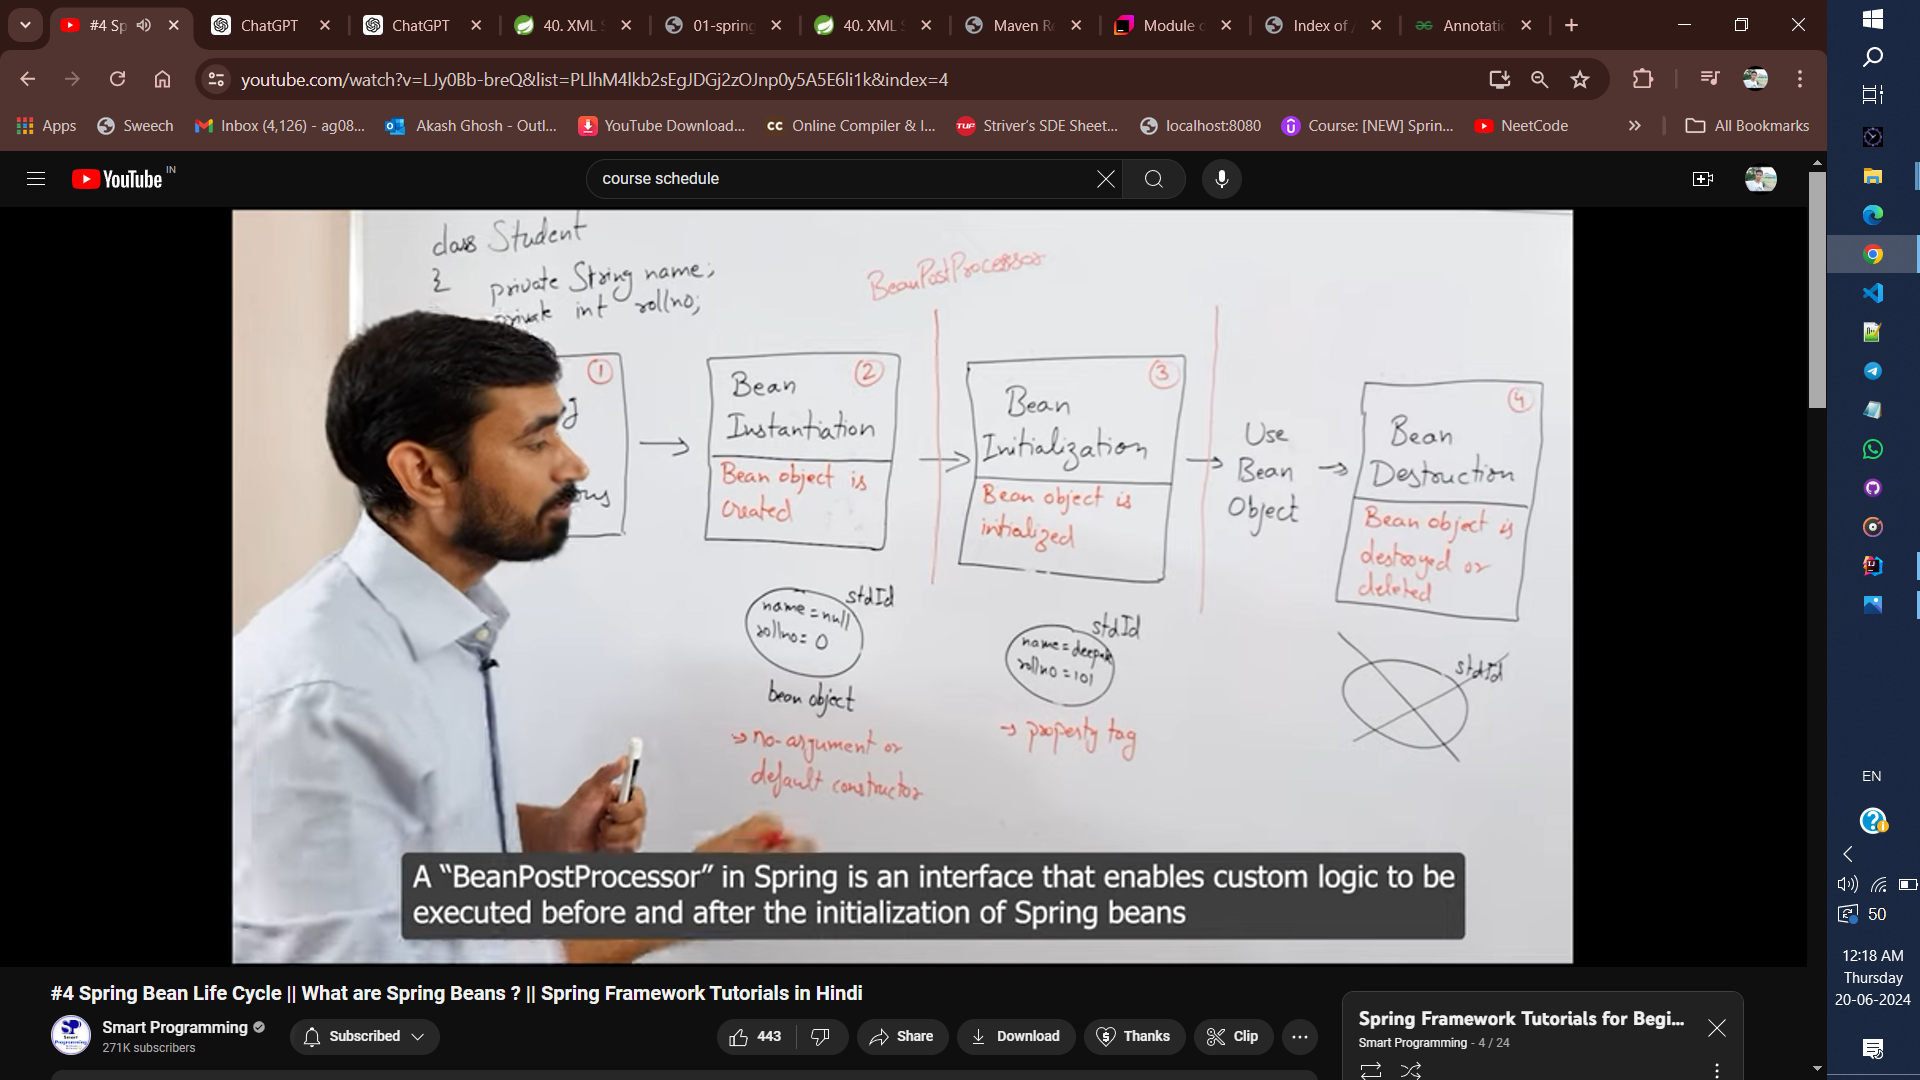 #4 Sp
ChatGPT
ChatGPT
40. XML S
01-spring
40. XML S
Maven Re
Module o
Index of /
Annotatio
youtube.com/watch?v=LJy0Bb-breQ&list=PLlhM4lkb2sEgJDGj2zOJnp0y5A5E6li1k&index=4
Apps
Sweech
Inbox (4,126) - ag08...
Akash Ghosh - Outl...
YouTube Download...
CC Online Compiler & I...
TUF Striver's SDE Sheet...
localhost:8080
Course: [NEW] Sprin...
NeetCode
»
All Bookmarks
YouTube IN
course schedule
class Student
{ private String name;
private int rollno;
BeanPostProcessor
1
2
Bean
Instantiation
Bean object is
created
3
Bean
Initialization
Bean object is
initialized
Use
Bean
Object
4
Bean
Destruction
Bean object is
destroyed or
deleted
stdId
name=null
rollno=0
bean object
→ no-argument or
default constructor
stdId
name=deepak
rollno=101
→ property tag
stdId
A “BeanPostProcessor” in Spring is an interface that enables custom logic to be
executed before and after the initialization of Spring beans
#4 Spring Bean Life Cycle || What are Spring Beans ? || Spring Framework Tutorials in Hindi
Smart Programming
271K subscribers
Subscribed
443
Share
Download
Thanks
Clip
Spring Framework Tutorials for Begi...
Smart Programming - 4 / 24
EN
50
12:18 AM
Thursday
20-06-2024